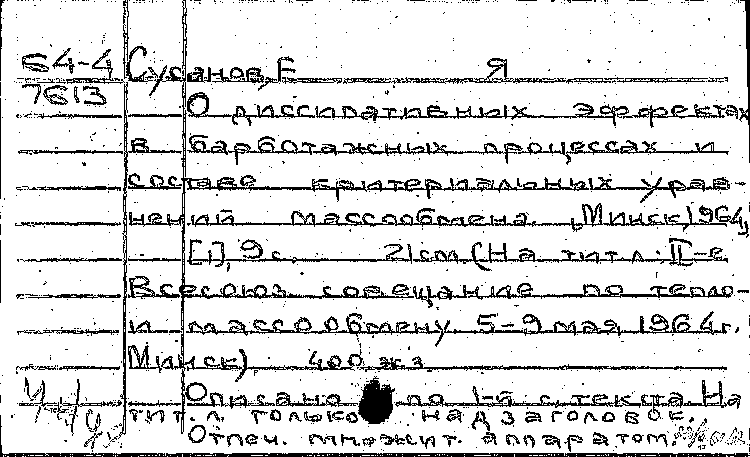 64-4 Сусанов, Е Я
7613
О диссипативных эффектах
в барботажных процессах и
составе критериальных урав-
нений массообмена. Минск, 1964,
[1], 9 с. 21 см. (На тит. л.: II-е
Всесоюз. совещание по тепло-
и массообмену. 5-9 мая 1964 г.
Минск) 400 экз.
Описано по 1-й с. текста. На
тит. л. только надзаголовок.
Отпеч. множит. аппаратом.